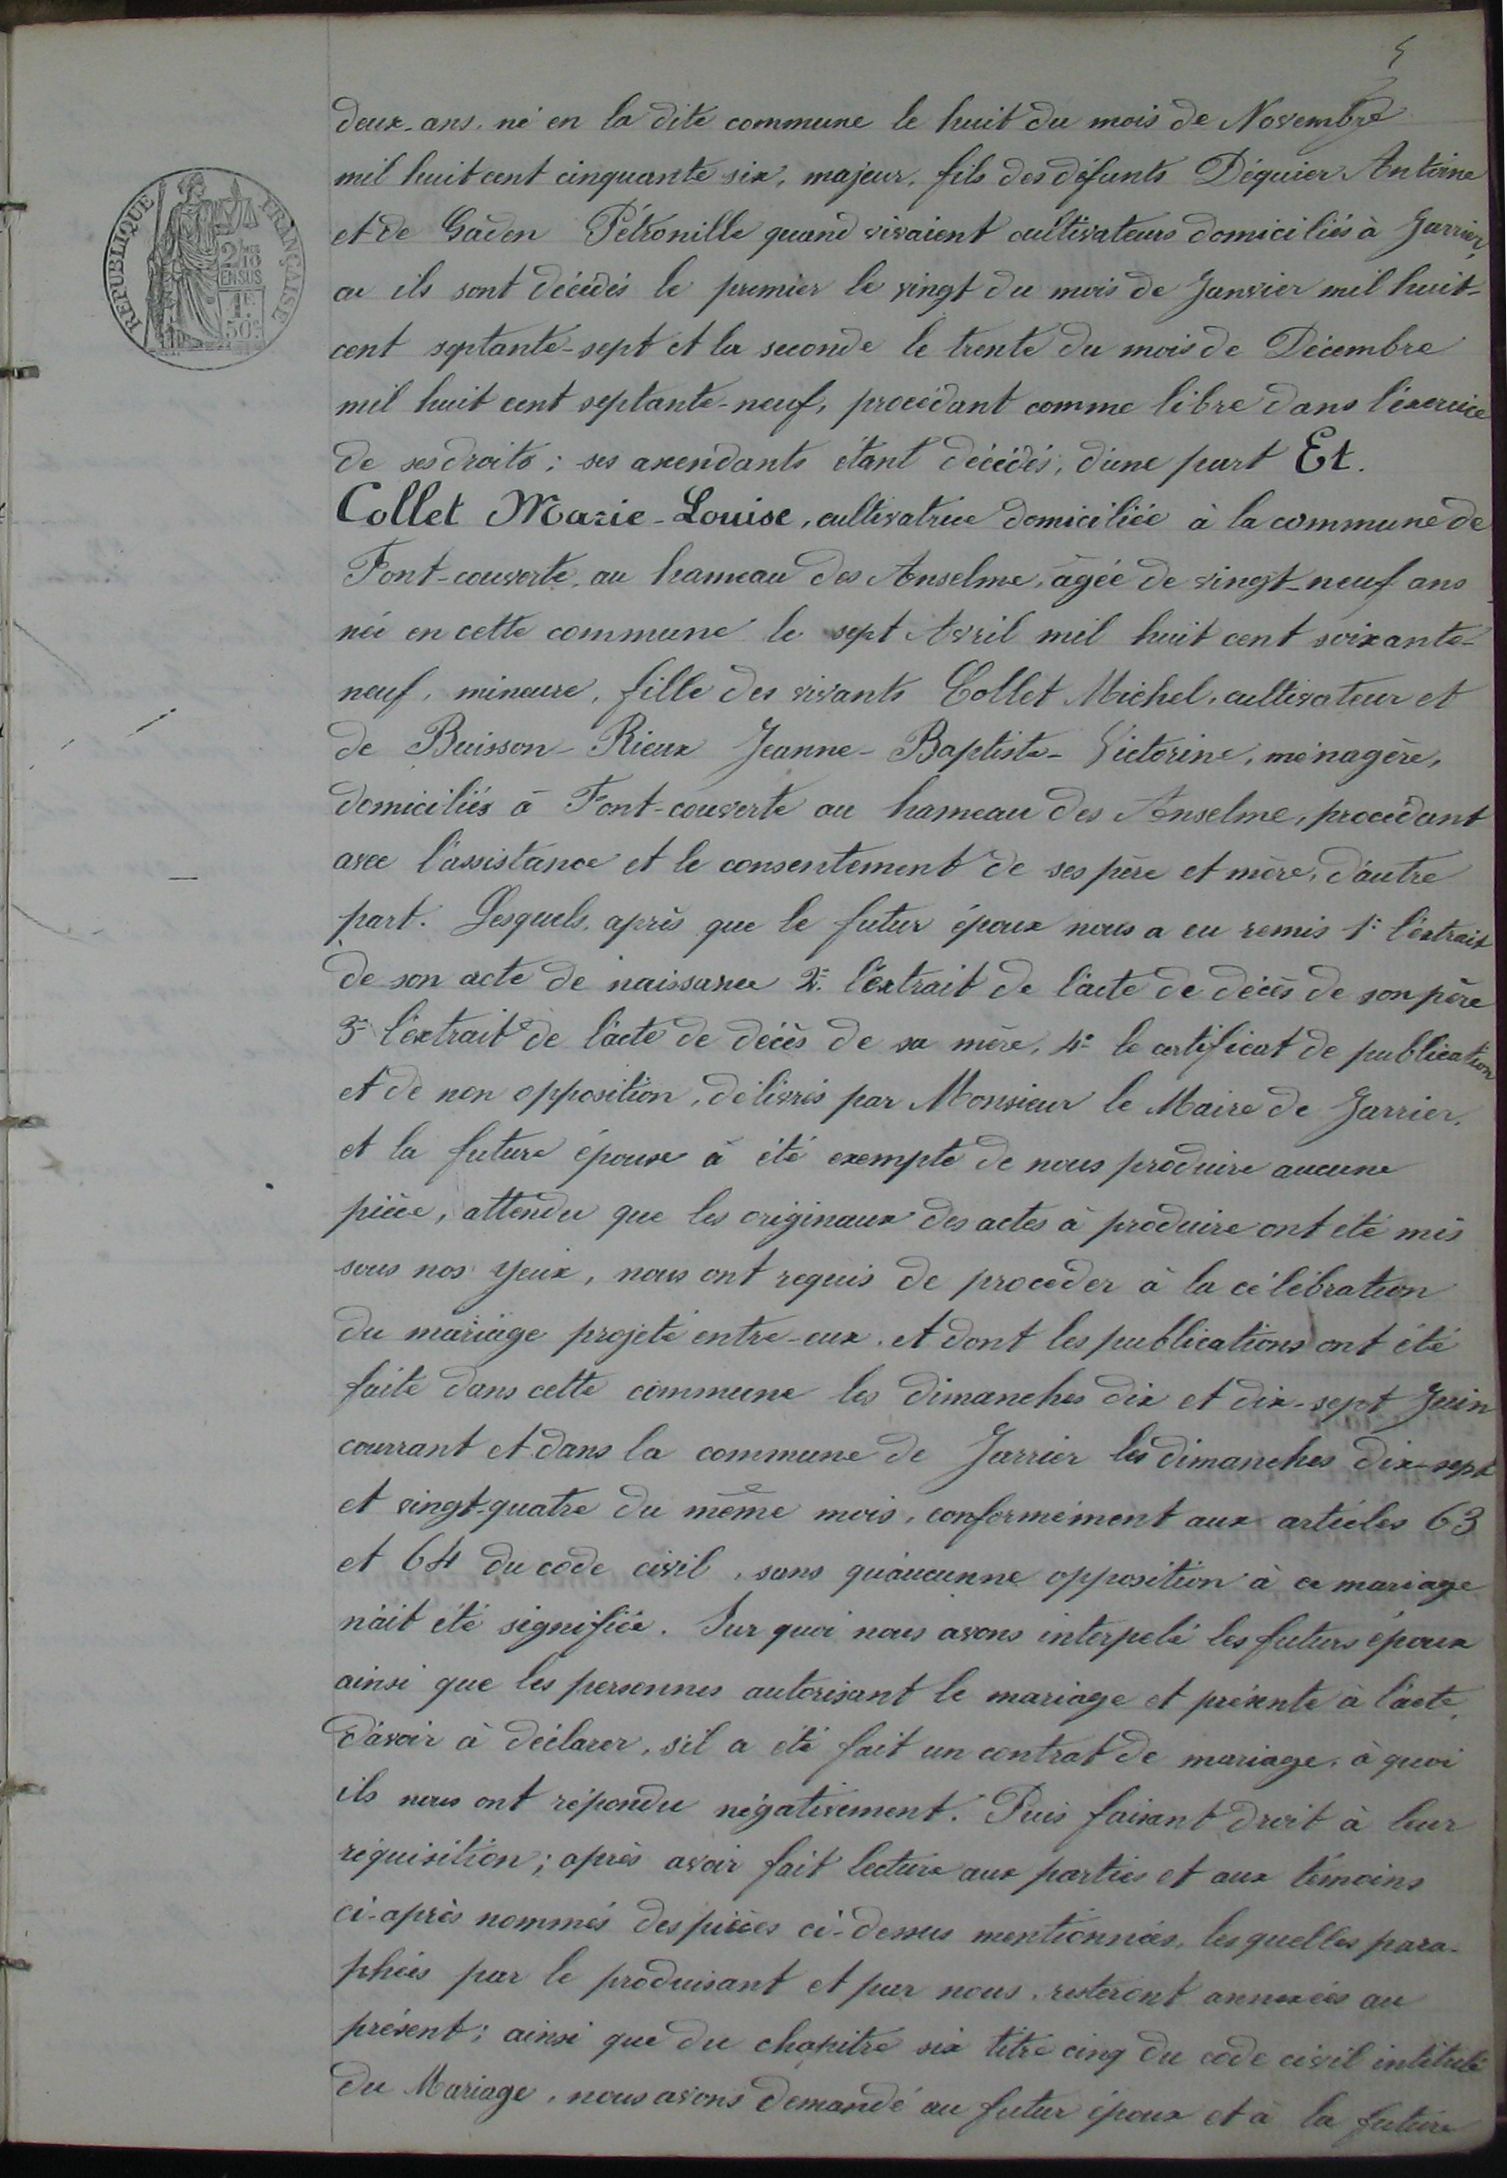 5
RÉPUBLIQUE FRANÇAISE
2/10
EN SUS
1F
50C
deux-ans, né en la dite commune le huit du mois de Novembre
mil huit cent cinquante six, majeur, fils des défunts Déquier Antoine
et de Gaden Pétronille quand vivaient cultivateurs domiciliés à Jarrier,
ou ils sont décédés le premier le vingt du mois de Janvier mil huit-
cent septante-sept et la seconde le trente du mois de Décembre
mil huit cent septante-neuf, procédant comme libre dans l'éxercice
de ses droits; ses axendants étant décédés, d'une part Et.
Collet Marie-Louise, cultivatrice domiciliée à la commune de
Font-couverte, au hameau des Anselme, âgée de vingt-neuf ans
née en cette commune le sept Avril mil huit cent soixante-
neuf, mineure, fille des vivants Collet Michel, cultivateur et
de Buisson-Rieux Jeanne-Baptiste-Victorine, ménagère,
domiciliés à Font-couverte au hameau des Anselme, procédant
avec l'assistance et le consentement de ses père et mère, d'autre
part. Lesquels, après que le futur époux nous a eu remis 1° l'extrait
de son acte de naissance 2° l'extrait de l'acte de décès de son père
3° l'extrait de l'acte de décès de sa mère, 4° le certificat de publication
et de non opposition, délivrés par Monsieur le Maire de Jarrier,
et la future épouse à été exempte de nous produire aucune
pièce, attendu que les originaux des actes à produire ont été mis
sous nos yeux, nous ont requis de procéder à la célébration
du mariage projeté entre-eux, et dont les publications ont été
faite dans cette commune les dimanches dix et dix-sept Juin
courrant et dans la commune de Jarrier les dimanches dix-sept
et vingt-quatre du même mois, conformément aux articles 63
et 64 du code civil, sans qu'aucunne opposition à ce mariage
n'ait été signifiée. Sur quoi nous avons interpelé les futurs époux
ainsi que les personnes autorisant le mariage et présente à l'acte,
d'avoir à déclarer, s'il a été fait un contrat de mariage, à quoi
ils nous ont répondu négativement. Puis faisant droit à leur
réquisition; après avoir fait lecture aux parties et aux témoins
ci-après nommés des pièces ci-dessus mentionnées, lesquelles para-
phées par le produisant et par nous, resteront annexées au
présent; ainsi que du chapitre six titre cinq du code civil intitulé
du Mariage, nous avons demandé au futur époux et à la future